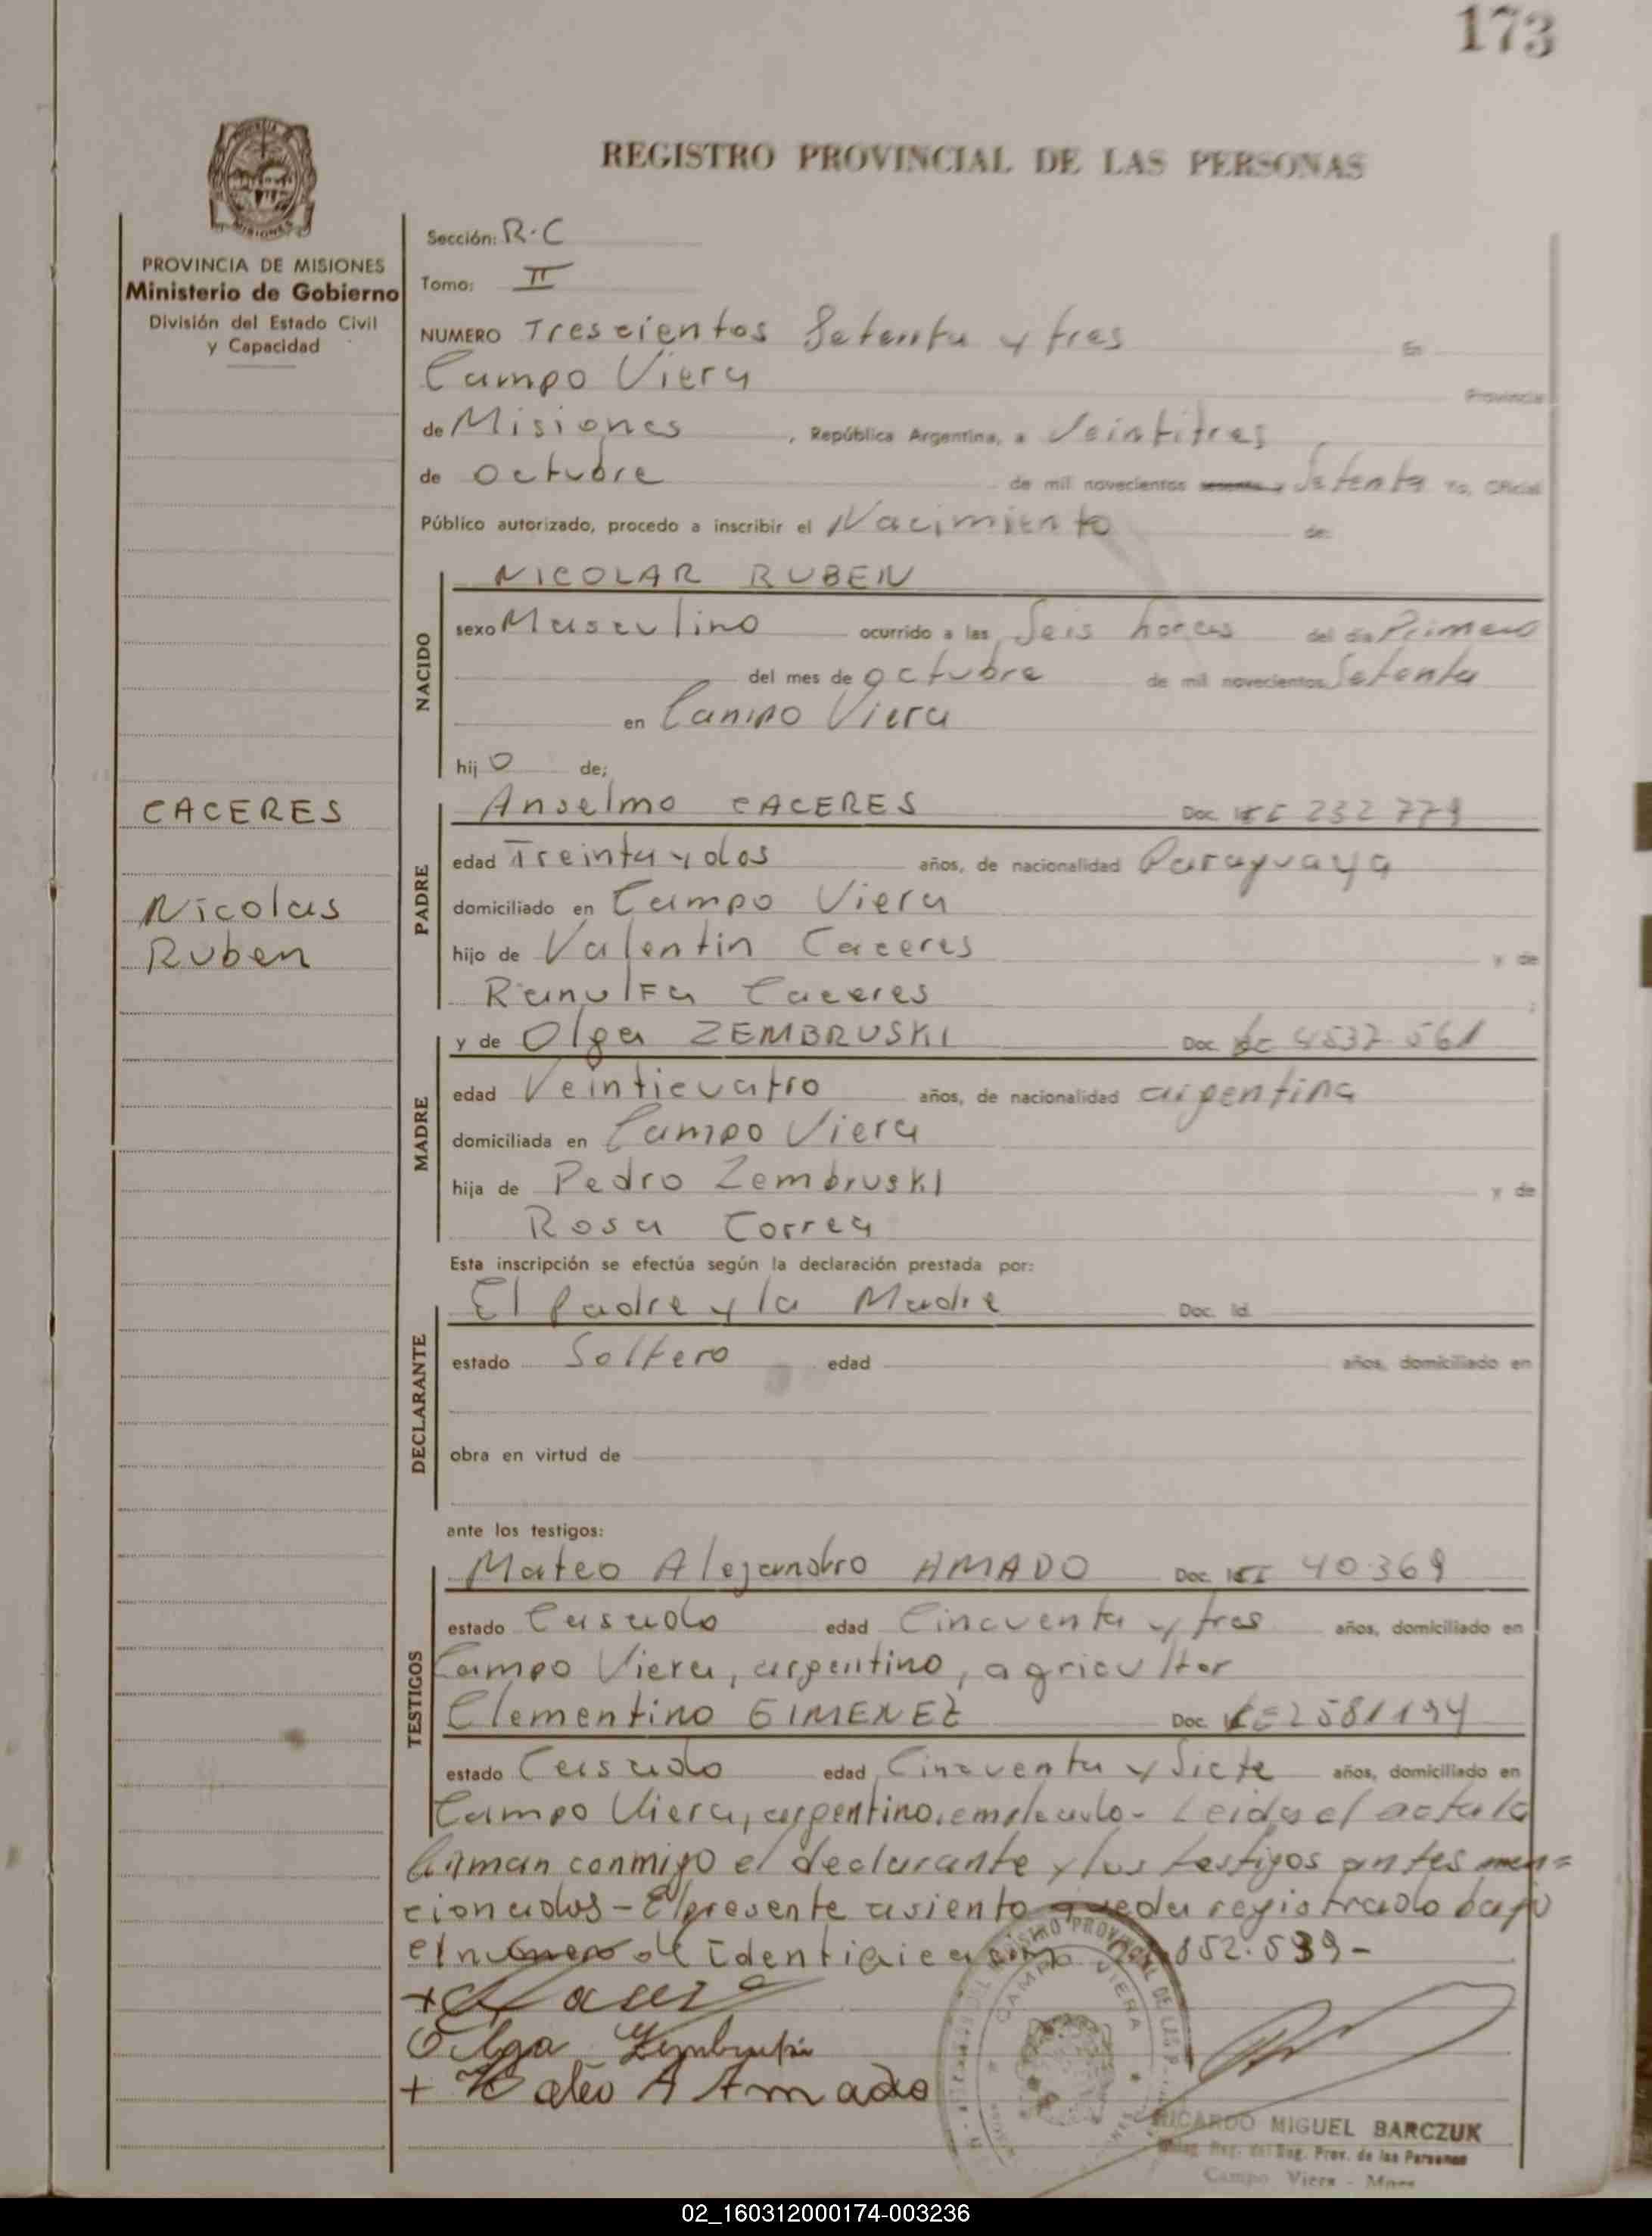 173
REGISTRO PROVINCIAL DE LAS PERSONAS
PROVINCIA DE MISIONES
Ministerio de Gobierno
División del Estado Civil
y Capacidad
Sección: R.C
Tomo: II
NUMERO Trescientos Setenta y tres En
Campo Viera Provincia
de Misiones, República Argentina, a Veintitres
de octubre de mil novecientos sesenta y Setenta Yo, Oficial
Público autorizado, procedo a inscribir el Nacimiento de:
NACIDO
NICOLAR RUBEN
sexo Masculino ocurrido a las Seis horas del día Primero
del mes de octubre de mil novecientos Setenta
en Campo Viera
hijo de;
CACERES
Nicolas
Ruben
PADRE
Anselmo CACERES Doc. 232 779
edad Treinta y dos años, de nacionalidad Paraguaya
domiciliado en Campo Viera
hijo de Valentin Caceres y de
Ranulfa Caceres ;
MADRE
y de Olga ZEMBRUSKI Doc. 4537 561
edad Veinticuatro años, de nacionalidad argentina
domiciliada en Campo Viera
hija de Pedro Zembruski y de
Rosa Correa
Esta inscripción se efectúa según la declaración prestada por:
DECLARANTE
El Padre y la Madre Doc. Id.
estado Soltero edad años, domiciliado en
obra en virtud de
ante los testigos:
TESTIGOS
Mateo Alejandro AMADO Doc. 40.369
estado Casado edad Cincuenta y tres años, domiciliado en
Campo Viera, argentino, agricultor
Clementino GIMENEZ Doc. 2581194
estado Casado edad Cincuenta y Siete años, domiciliado en
Campo Viera, argentino, empleado - Leida el acta la
firman conmigo el declarante y los testigos antes men=
cionados - El presente asiento queda registrado bajo
el numero de identificacion 852.539-
Olga Zembruski
+ Mateo A Amado
CAMPO VIERA
RICARDO MIGUEL BARCZUK
Reg. del Reg. Prov. de las Personas
Campo Viera - Mnes
02_160312000174-003236